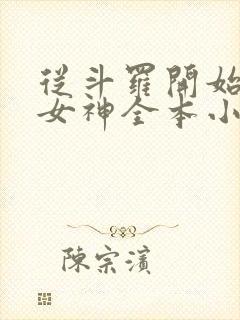 從斗羅開始
女神全本小
陳宗濱